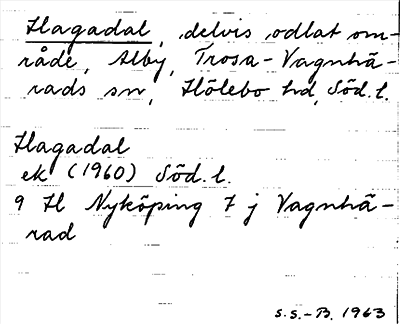 Hagadal, delvis odlat om-
råde, Alby, Trosa-Vagnhä-
rads sn, Hölebo hd, Söd.l.
Hagadal
ek (1960) Söd.l.
9 H Nyköping 7 j Vagnhä-
rad
S.S.-B. 1963